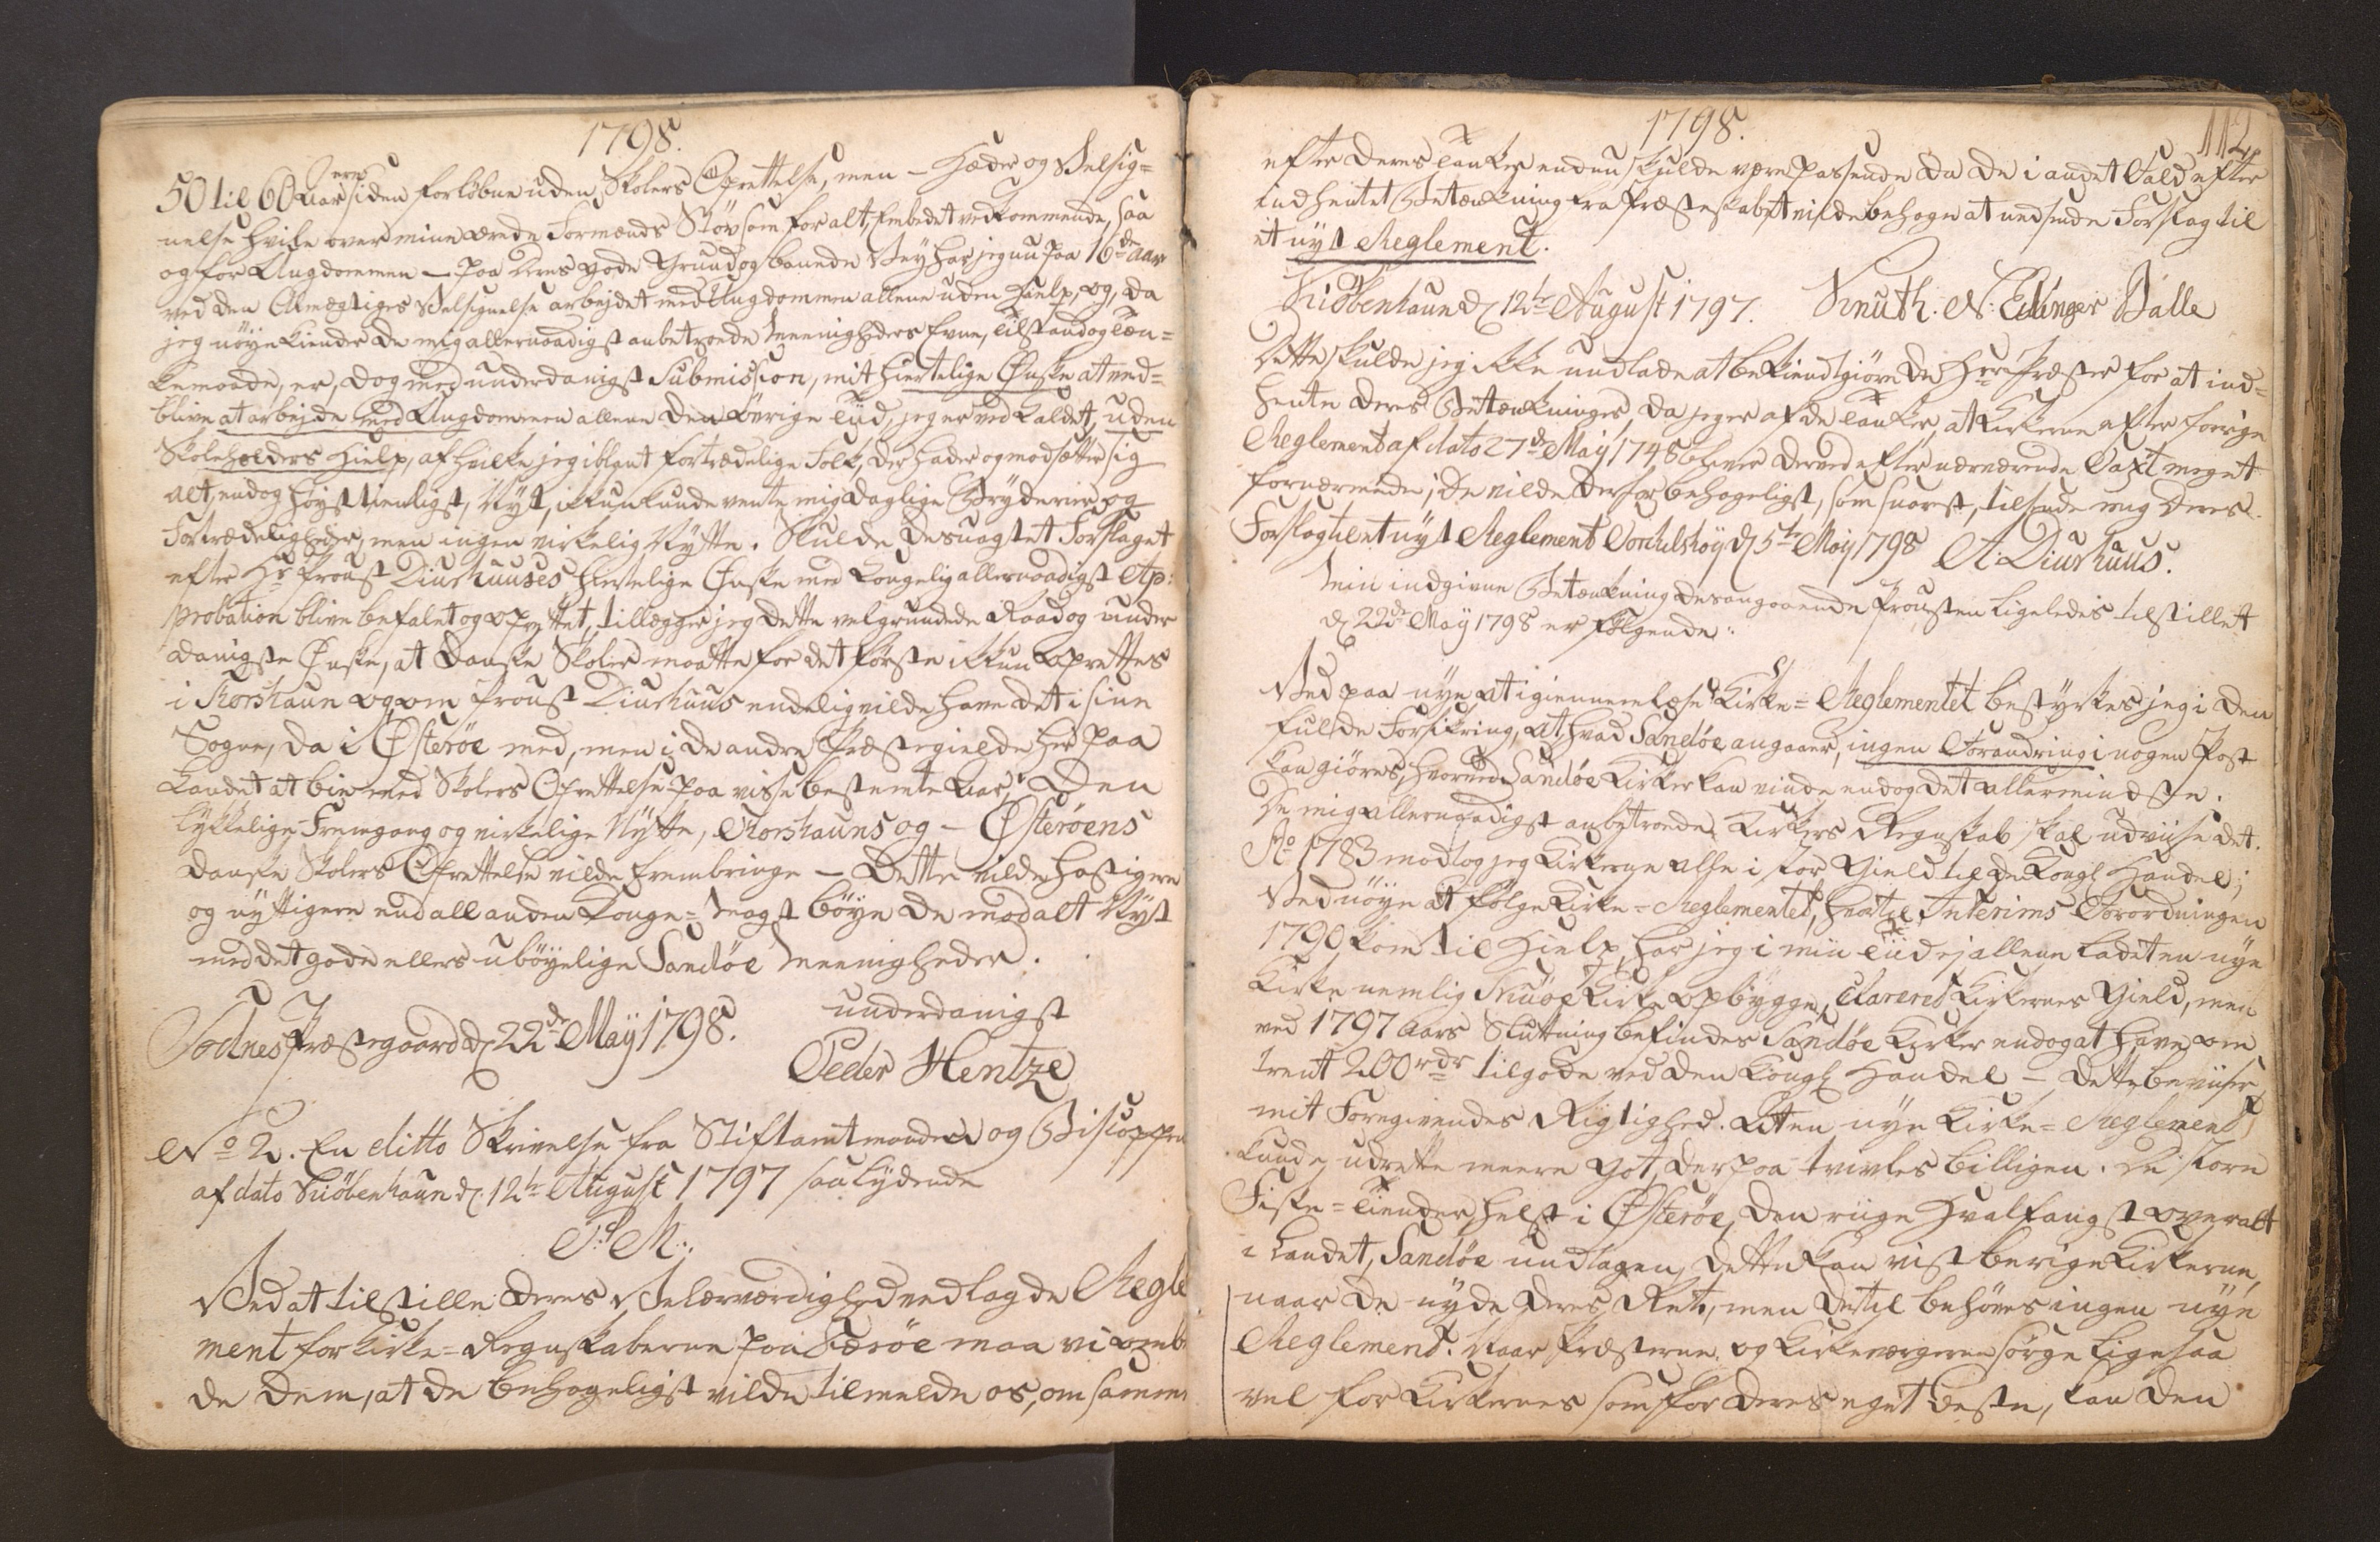 1798.
50 til 60 Aar siden ere forløbne uden Skolers Oprettelse, men – Hæder og Velsig=
nelse hvile over mine ærede Formænds Støv som for alt, Embedet vedkommende, saa
og for Ungdommen – paa deres gode Grund og banede Vey har jeg nu paa 16de Aar
ved den Almægtiges Velsignelse arbejdet med Ungdommen allene uden Hielp, og, da
jeg nøye kiender de mig allernaadigst anbetroede Meenigheders Evne, Tilstand og Tæn=
kemaade, er, dog med underdanigst Submission, mit hiertelige Ønske at ved=
blive at arbejde med Ungdommen allene den øvrige Tiid, jeg er ved Kaldet, uden
Skoleholders Hielp, af hvilke jeg iblant fortrædelige Folk, der hader og modsætter sig
alt, endog høyst tienligst, Nyt, ikkun kunde vente mig daglige Bryderier og
Fortrædeligheder, men ingen virkelig Nytte. Skulde desuagtet Forslaget
efter Hr. Proust Diurhuuses hiertelige Ønske med Kongelig allernaadigst Ap=
probation blive befalet og oprettet, tillægger jeg dette velgrundede Raad og under
danigste Ønske, at Danske Skoler maatte for det første ikkun oprettes
i Thorshaun og om Proust Diurhuus endelig vilde have det i sine
Sogne, da i Østerøe med, men i de andre Præstegielde her paa
Landet at bie med Skolers Oprettelse paa visse bestemte Aar; Den
lykkelige Fremgang og virkelige Nytte, Thorshauns og – Østerøens
Danske Skolers Oprettelse vilde frembringe – Dette vilde hastigere
og nyttigere end all anden Konge=Magt bøye de mod alt Nyt
med det gode ellers ubøyelige Sandøe Meenigheder.
underdanigst
Todnes Præstegaard d. 22de Maÿ 1798.
Peder Hentze
No 2. En ditto Skrivelse fra Stiftamtmanden og Biscoppen
af dato Kiøbenhaun d. 12te August 1797 saa lydende
P. M.:
Ved at tilstille Deres Velærværdighed vedlagde Regle
ment for Kirke=Regnskaberne paa Færøe maa vi ombe
de Dem, at de behageligst vilde tilmelde os, om samme
1798.
112
efter Deres Tanker endnu skulde være passende da De i andet Fald efter
indhentet Betænkning fra Præsteskabet vilde behage at nedsende Forslag til
et nyt Reglement.
Kiøbenhaun d. 12te August 1797. Knuth. N. Edinger Balle
Dette skulde jeg ikke undlade at bekiendtgiøre de Herr Præster for at ind=
hente deres Betænkninger, da jeg er af de Tanker, at Kirkerne efter forrige
Reglement af dato 27de Maÿ 1748 bliver derved efter nærværende Taxt meget
fornærmede; De vilde derfor behageligst, som snarest, tilsende mig Deres
Forslag til et nyt Reglement d. 5te Maÿ 1798 A. Diurhuus.
Min indgivne Betænkning desangaaende Prousten ligeledes tilstillet
d. 22de Maÿ 1798 er følgende:
Ved paa nye at igiennemlæse Kirke=Reglementet bestyrkes jeg i den
fulde Forsikring, at hvad Sandøe angaaer, ingen Forandring i nogen Post
kan giøres, hvorved Sandøe Kirker kan vinde endog det allermindste.
De mig allernaadigst anbetroede Kirkers Regnskab skal udviise det.
Ao 1783 modtog jeg Kirkerne alle i stor Gield til de Kongl. Handel;
Ved nøye at følge Kirke=Reglementet, hvortil Interims Forordningen
1790 kom til Hielp, har jeg i min Tiid ej allene ladet en nye
Kirke nemlig Skuøe Kirke opbygge, clareret Kirkernes Gield, men
ved 1797 Aars Sluttning befindes Sandøe Kirker endog at have om
trent 200 rdr tilgode ved den Kongl. Handel – Dette beviiser
mit Foregivendes Rigtighed. At en nye Kirke=Reglement
kunde udrette meere got, derpaa tvivles billigen. De store
Fiske=Tiender, helst i Østerøe, den riige Hvalfangst overalt
i Landet, Sandøe undtagen, dette kan vist berige Kirkerne,
naar de nyde deres Ret, men dertil behøves ingen nye
Reglement. Naar Præsterne og Kirkeværgerne sørge ligesaa
vel for Kirkernes som for deres eget Beste, kan den